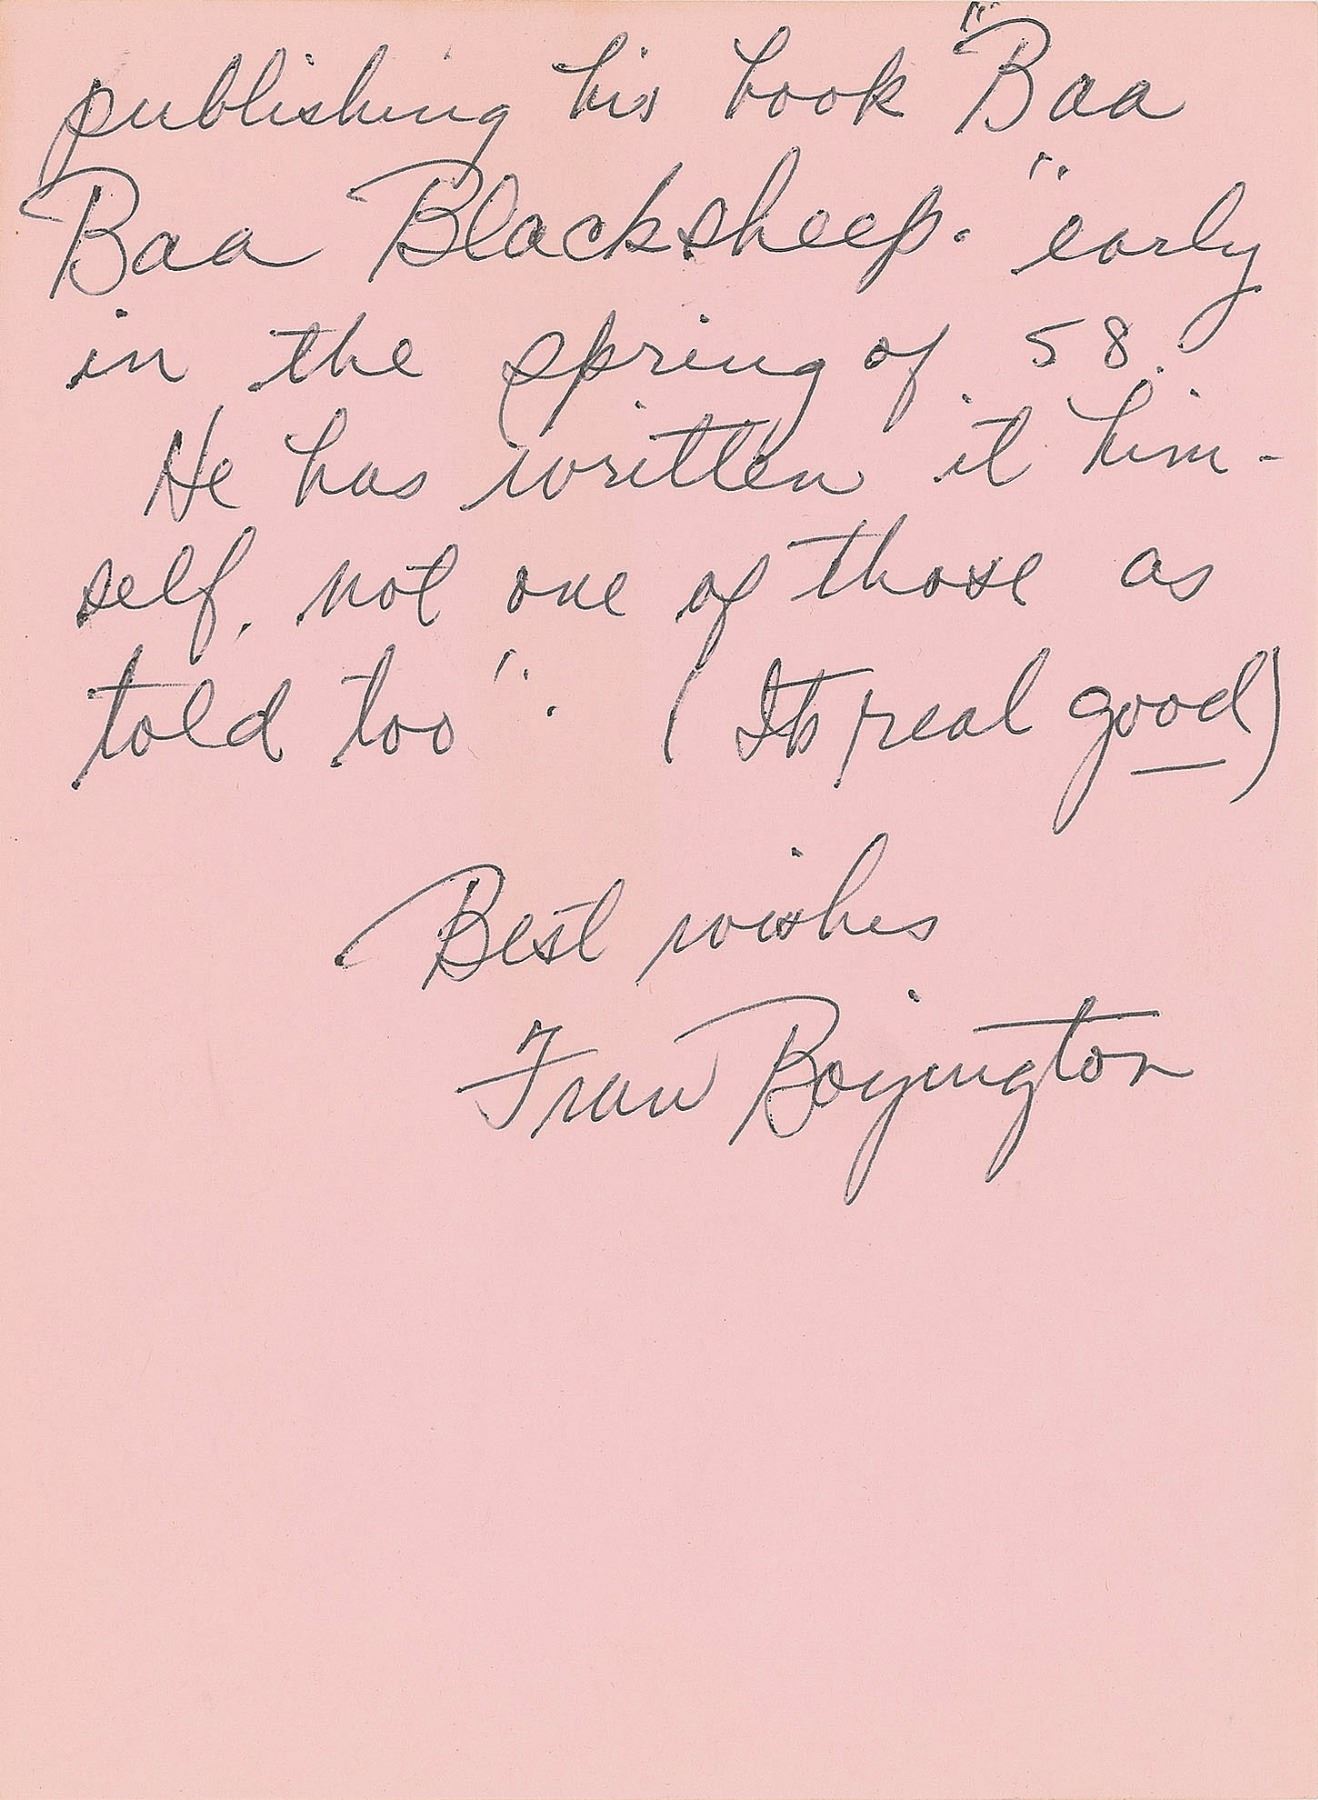 publishing his book "Baa
Baa Blacksheep." early
in the spring of 58.
He has written it him-
self, not one of those as
told too". (Its real good)
Best wishes
Fran Boyington